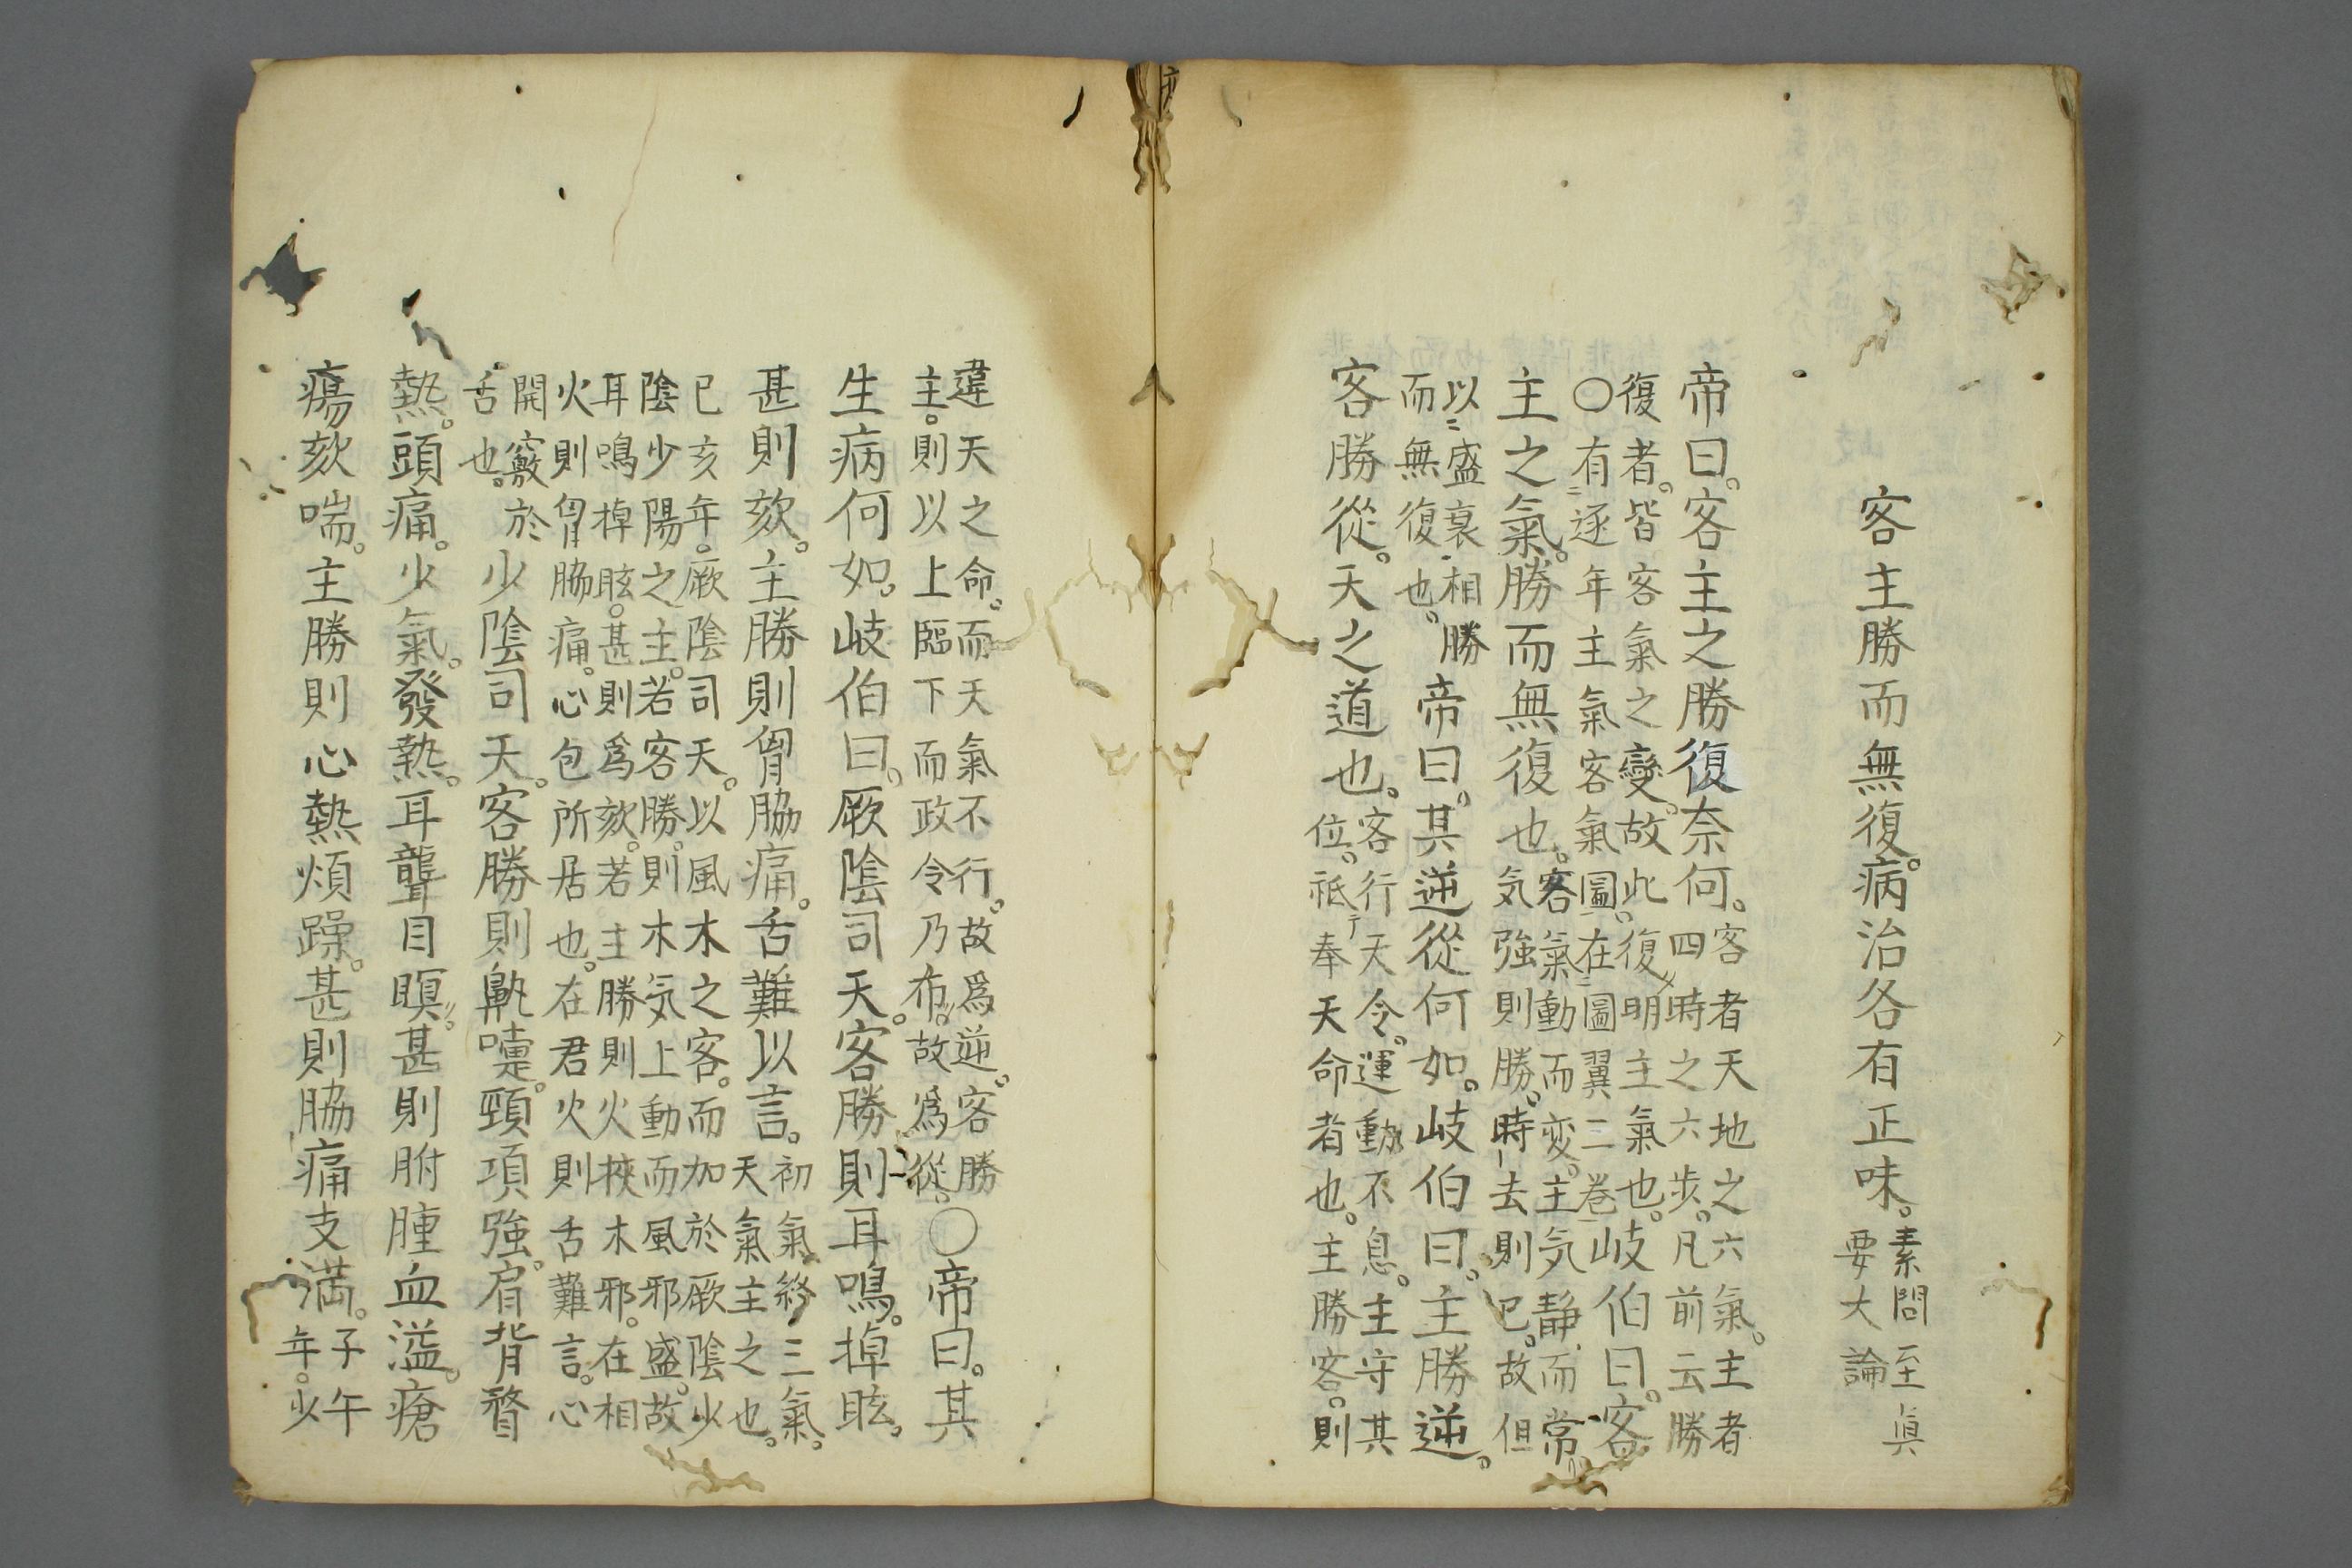 客主勝而無復。病治各有正味。素問至真要大論
帝曰。客主之勝復奈何。客者天地之六氣。主者四時之六步。凡前云勝
復者。皆客氣之變。故此復明主氣也。岐伯曰。客
〇有逐年主氣客氣圖。在圖翼二卷
主之氣。勝而無復也。客氣動而変。主気静而常気強則勝。時去則已。故但
以盛衰相勝而無復也。帝曰。其逆從何如。岐伯曰。主勝逆。
客勝從。天之道也。客行天令。運動不息。主守其位。祗奉天命者也。主勝客。則
違天之命。而天氣不行。故爲逆。客勝主。則以上臨下而政令乃布。故爲從。〇帝曰。其
生病何如。岐伯曰。厥陰司天。客勝則耳鳴。掉眩。
甚則欬。主勝則胷脇痛。舌難以言。初氣終三氣。天氣主之也。
已亥年。厥陰司天。以風木之客。而加於厥陰少
陰少陽之主。若客勝。則木気上動而風邪盛。故
耳鳴掉眩。甚則爲欬。若主勝則火挾木邪。在相
火則胷脇痛。心包所居也。在君火則舌難言。心
開竅於舌也。少陰司天。客勝則鼽嚏。頸項強。肩背瞀
熱。頭痛。少氣。發熱。耳聾目瞑。甚則胕腫血溢。瘡
瘍欬喘。主勝則心熱煩躁。甚則脇痛支満。子午年。少